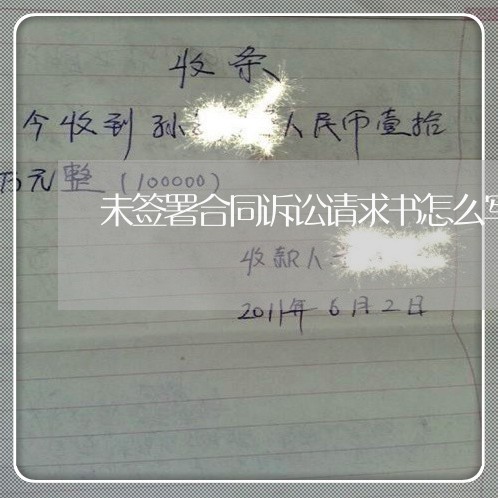 收条
今收到孙 人民币壹拾
万元整(100000)
未签署合同诉讼请求书怎么写
收款人
2011年6月2日